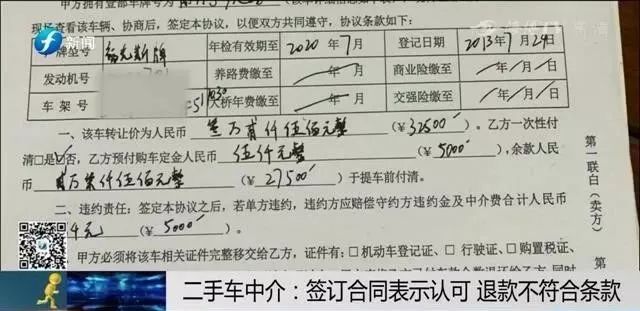 甲方拥有壹部车牌号为
现场查看该车辆、协商后，签定本协议，以便双方共同遵守，协议条款如下：
新闻
牌型号 年检有效期至 2020年7月 登记日期 2013年7月29日
发动机号 养路费缴至 年 月 商业险缴至 年 月
车架号 大桥年费缴至 年 月 交强险缴至 年 月
一、该车转让价为人民币 叁万贰仟伍佰元整 （¥ 32500）。乙方一次性付
清□是□否，乙方预付购车定金人民币 伍仟元整 （¥ 5000），余款人民
币 贰万柒仟伍佰元整 （¥ 27500）于提车前付清。
二、违约责任：签定本协议之后，若单方违约，违约方应赔偿守约方违约金及中介费合计人民币
（¥ 5000）。
甲方必须将该车相关证件完整移交给乙方，证件有：□机动车登记证、□行驶证、□购置税证、
第一联白（卖方）
二手车中介：签订合同表示认可 退款不符合条款